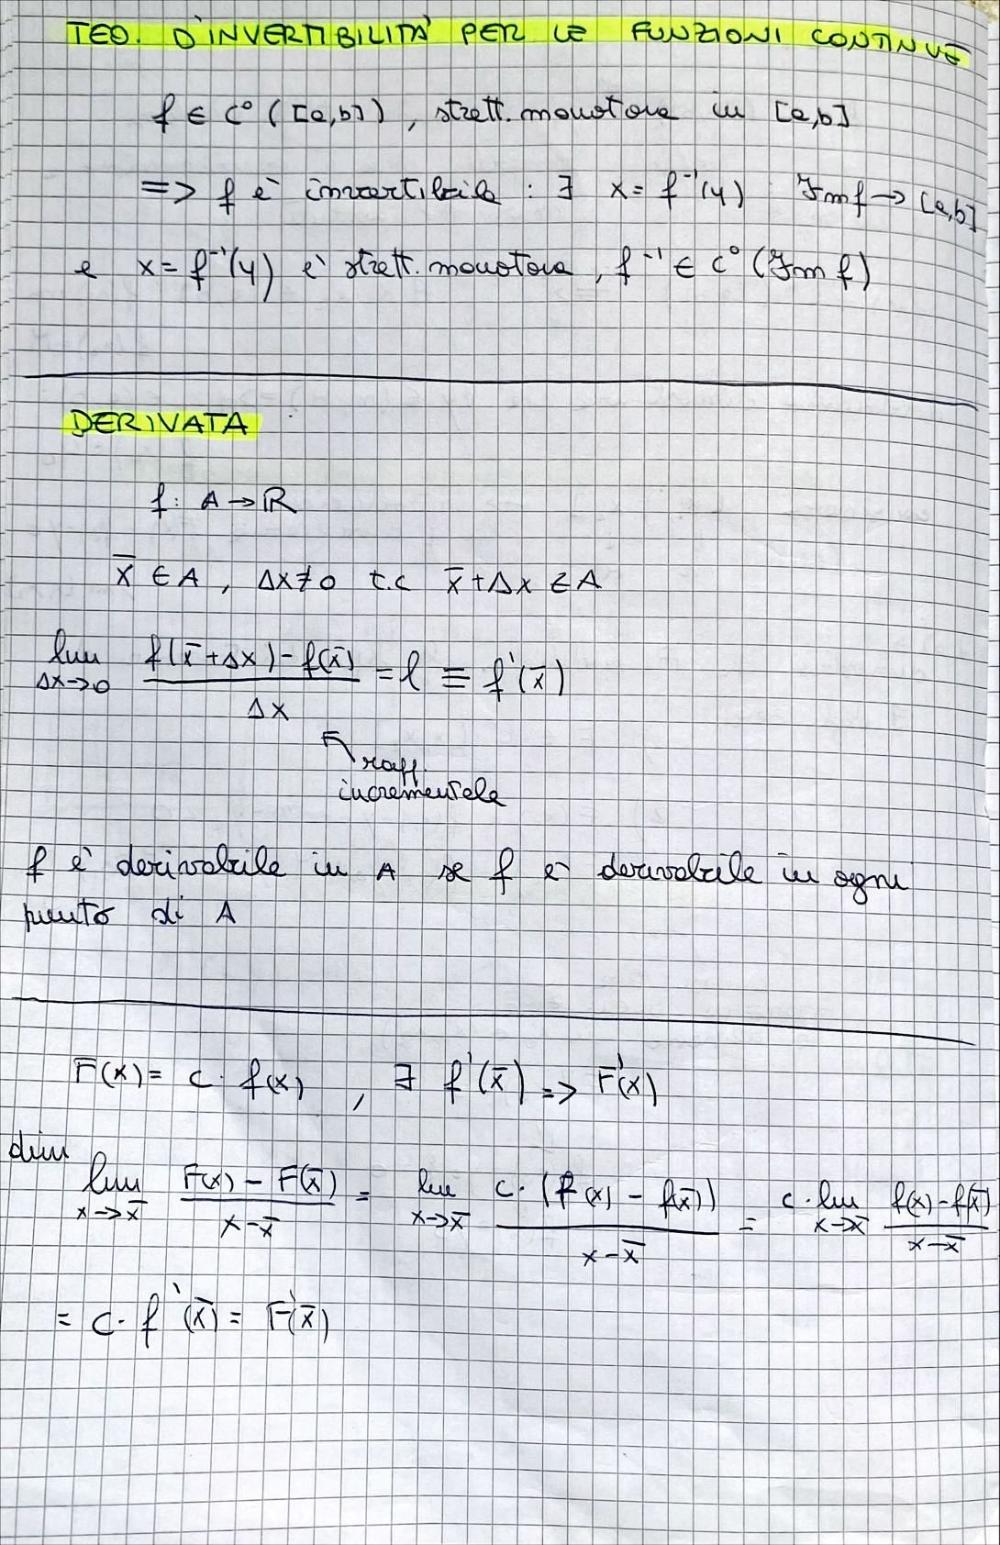 TEO. D'INVERTIBILITÀ PER LE FUNZIONI CONTINUE
f ∈ C⁰([a,b]), strett. monotona in [a,b]
=> f è invertibile : ∃ x = f⁻¹(y) Imf → [a,b]
e x = f⁻¹(y) è strett. monotona, f⁻¹ ∈ C⁰(Im f)
DERIVATA
f: A → ℝ
x̄ ∈ A, Δx ≠ 0 t.c x̄ + Δx ∈ A
lim Δx→0 (f(x̄+Δx) - f(x̄)) / Δx = l ≡ f'(x̄)
raff.
incrementale
f è derivabile in A se f è derivabile in ogni
punto di A
F(x) = c · f(x), ∃ f'(x̄) => F'(x)
dim
lim x→x̄ (F(x) - F(x̄)) / (x - x̄) = lim x→x̄ c·(f(x) - f(x̄)) / (x - x̄) = c · lim x→x̄ (f(x) - f(x̄)) / (x - x̄)
= c · f'(x̄) = F'(x̄)